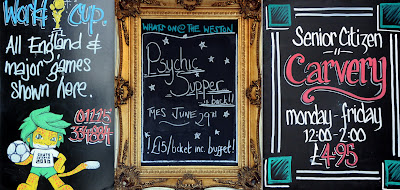 World Cup.
All England &
major games
shown here.
01225
WHATS ON @ THE WESTON
Psychic
Supper
is back!!
TUES JUNE 29TH
£15/ticket inc. buffet!
Senior Citizen
Carvery
monday-friday
12:00-2:00
£4.95